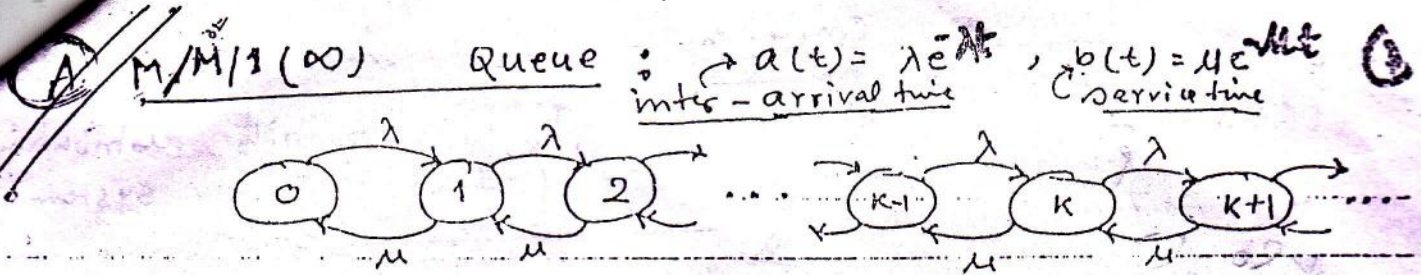 A M/M/1 (∞) Queue : → a(t) = λe^-λt , b(t) = μe^-μt 1
inter-arrival time service time
λ λ λ λ
0 1 2 ... K-1 K K+1 ....
μ μ μ μ